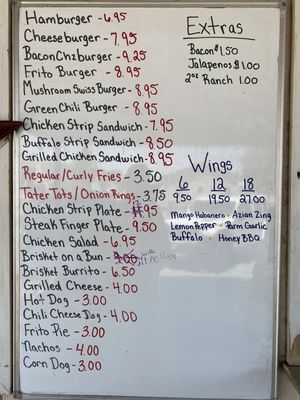 Hamburger - 6.95
Cheeseburger - 7.95
Bacon Chzburger - 9.25
Frito Burger - 8.95
Mushroom Swiss Burger - 8.95
Green Chili Burger - 8.95
Chicken Strip Sandwich - 7.95
Buffalo Strip Sandwich - 8.50
Grilled Chicken Sandwich - 8.95
Regular/Curly Fries - 3.50
Tater Tots/Onion Rings - 3.75
Chicken Strip Plate - .95
Steak Finger Plate - 9.50
Chicken Salad - 6.95
Brisket on a Bun -
Brisket Burrito - 6.50
Grilled Cheese - 4.00
Hot Dog - 3.00
Chili Cheese Dog - 4.00
Frito Pie - 3.00
Nachos - 4.00
Corn Dog - 3.00
Extras
Bacon $1.50
Jalapenos $1.00
2oz Ranch 1.00
Wings
6 12 18
9.50 19.50 27.00
Mango Habanero - Azian Zing
Lemon Pepper - Parm Garlic
Buffalo - Honey BBQ